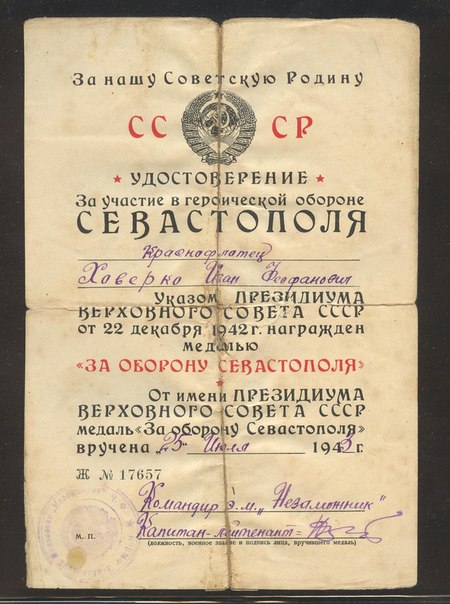 За нашу Советскую Родину
СС СР
УДОСТОВЕРЕНИЕ
За участие в героической обороне
СЕВАСТОПОЛЯ
Краснофлотец
Ховерко Иван Феофанович
Указом ПРЕЗИДИУМА
ВЕРХОВНОГО СОВЕТА СССР
от 22 декабря 1942 г. награжден
медалью
«ЗА ОБОРОНУ СЕВАСТОПОЛЯ»
От имени ПРЕЗИДИУМА
ВЕРХОВНОГО СОВЕТА СССР
медаль «За оборону Севастополя»
вручена „25" Июля 1943 г.
Ж № 17657
Командир э.м. „Незаможник"
Капитан-лейтенант=
М. П. (должность, военное звание и подпись лица, вручившего медаль)